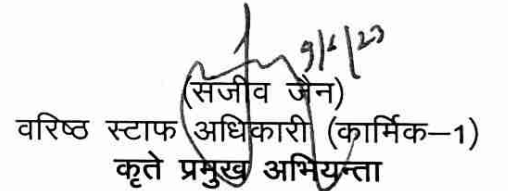 9/6/23
(संजीव जैन)
वरिष्ठ स्टाफ अधिकारी (कार्मिक–1)
कृते प्रमुख अभियन्ता